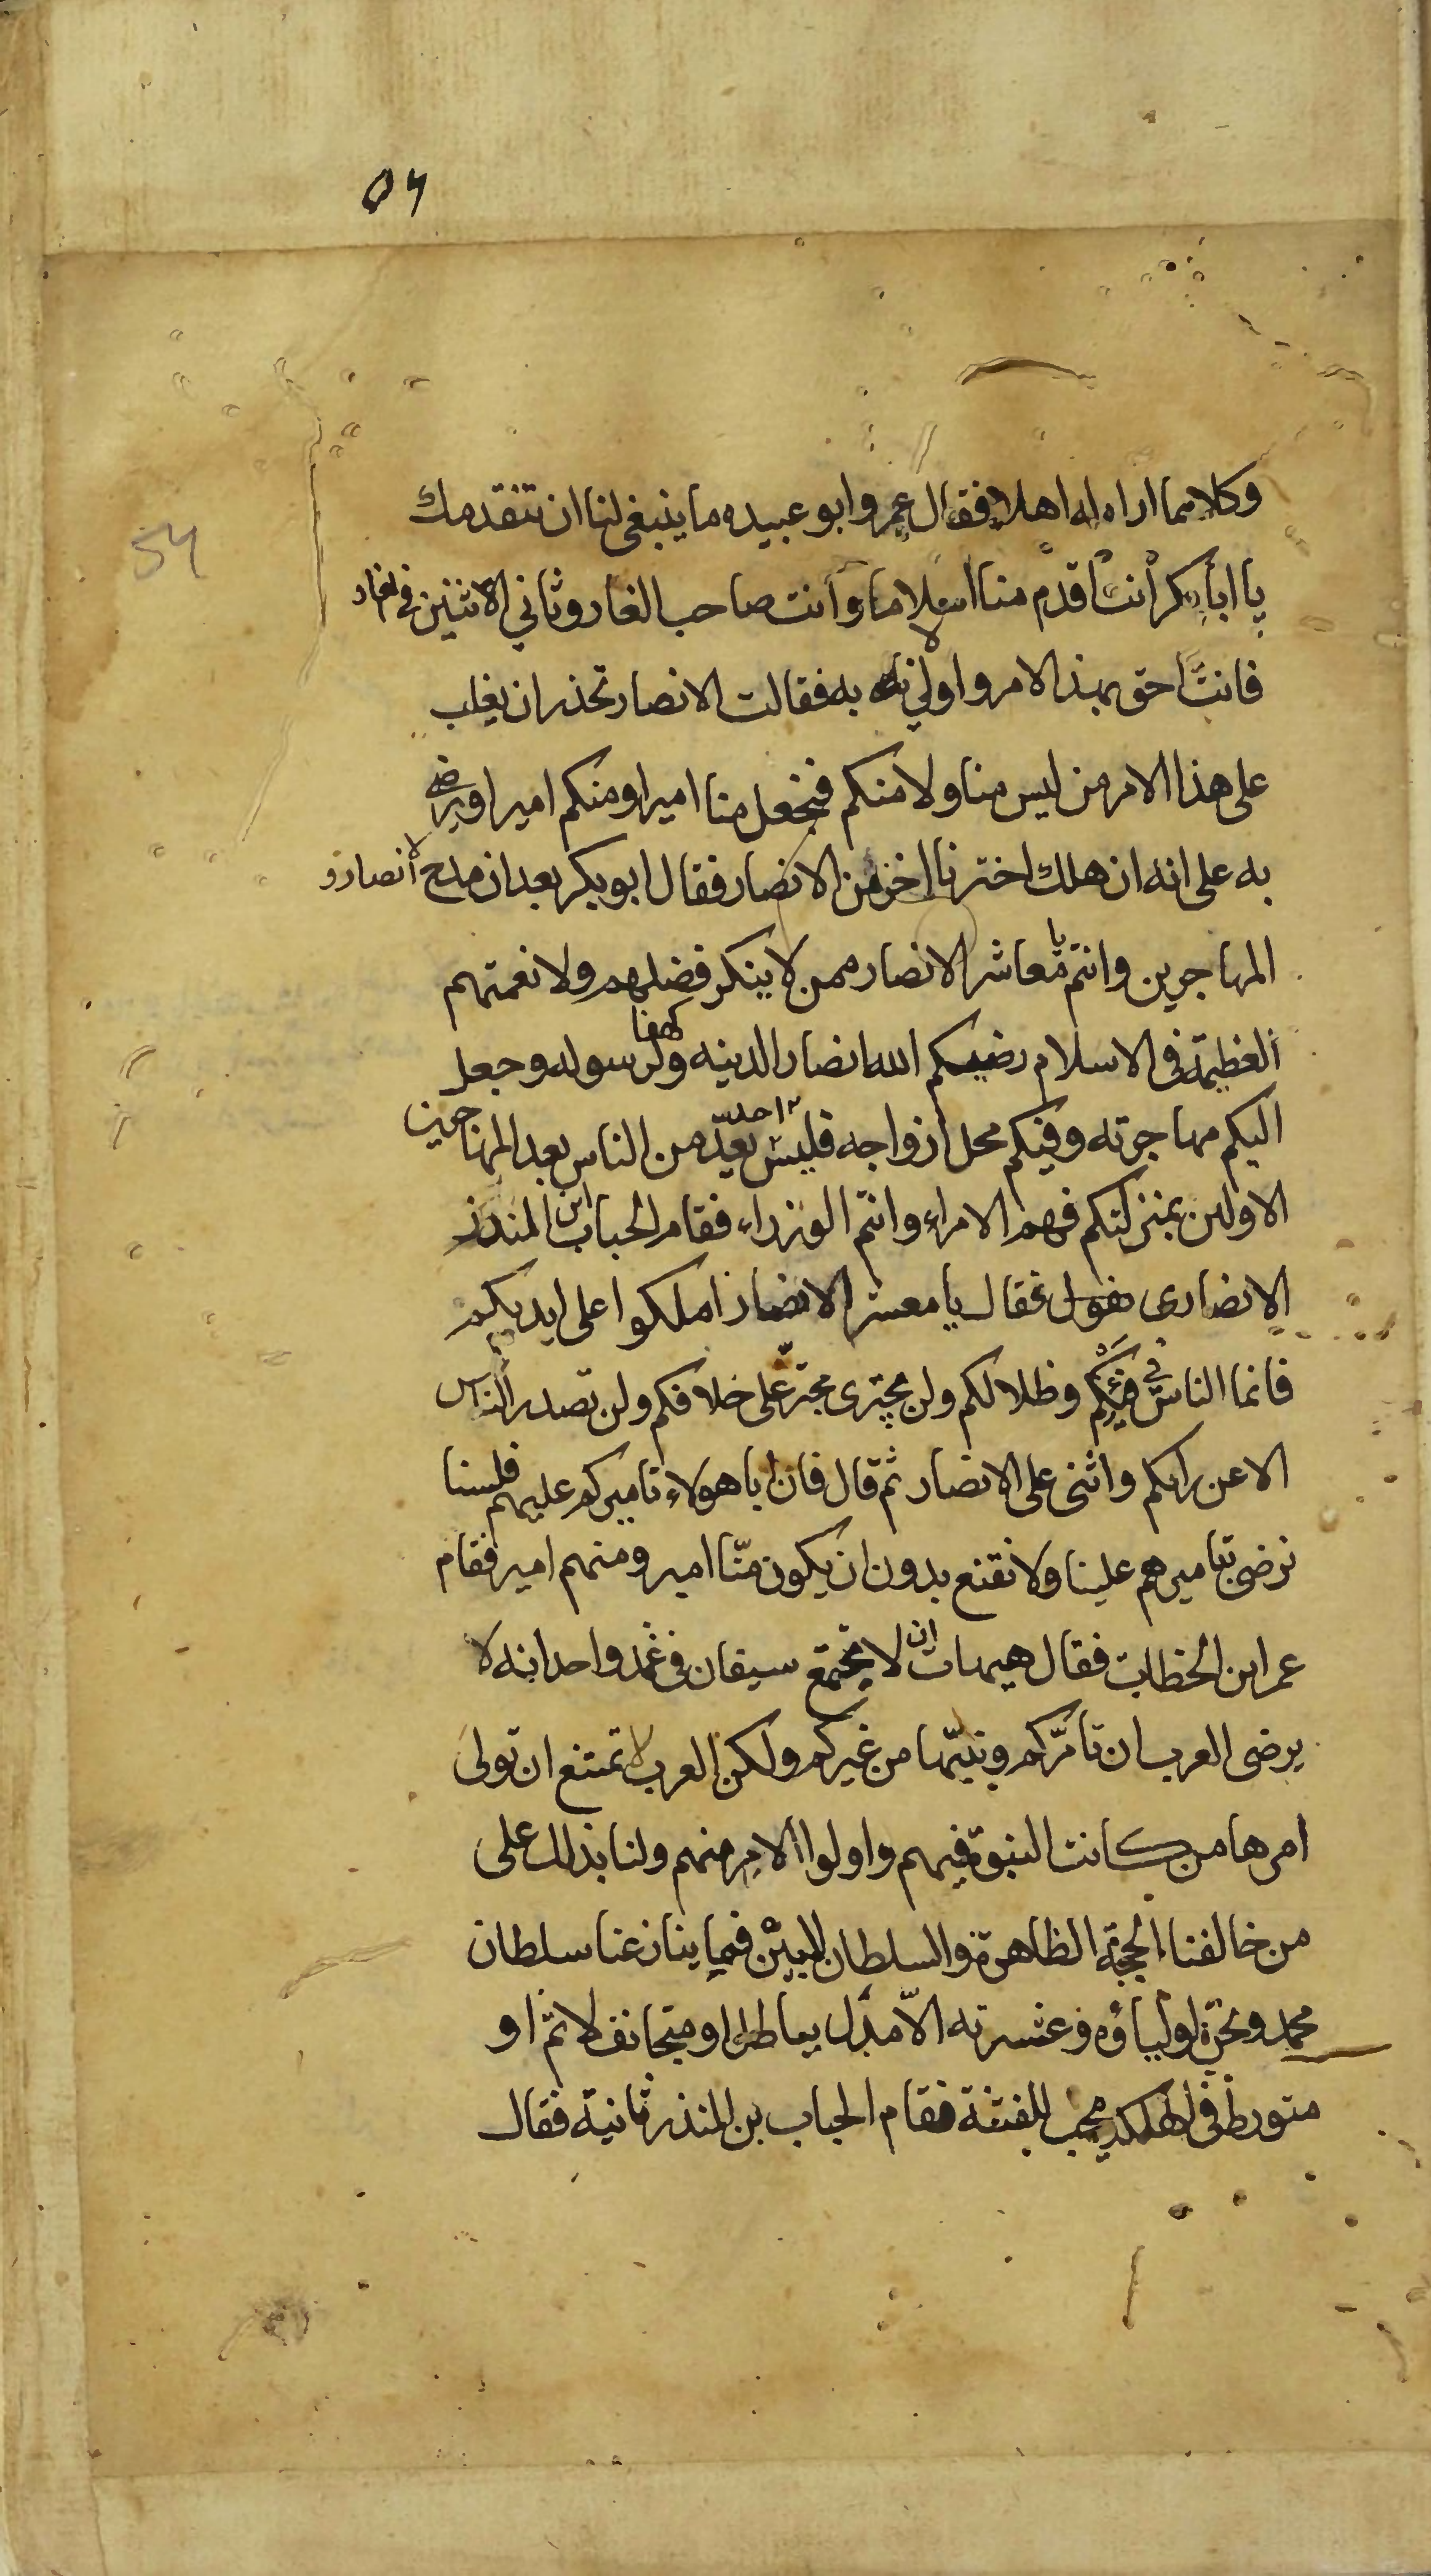 ٥٦
54
وكلاهما اراه له اهلا فقال عمر وابو عبيده ما ينبغى لنا ان نتقدمك
يا ابا بكر أنت اقدم منا اسلاما وأنت صاحب الغار وثاني الاثنين فى الغار
فانت احق بهذا الامر واولى به فقالت الانصار نحذر ان يغلب
على هذا الامر من ليس منا ولا منكم فنجعل منا اميرا ومنكم اميرا ويرضى
به على انه ان هلك اخترنا اخر من الانصار فقال ابو بكر بعد ان مدح الانصار و
المهاجرين وانتم يا معاشر الانصار ممن لا ينكر فضلهم ولا نعمتهم
العظيمة فى الاسلام رضيكم الله انصارا لدينه وكهفا لرسوله وجعل
اليكم مهاجرته وفيكم محل ازواجه فليس احد يعدّ من الناس بعد المهاجرين
الاولين بمنزلتكم فهم الامراء وانتم الوزراء فقام الحباب ابن المنذر
الانصارى فقال يا معشر الانصار املكوا على ايديكم
فانما الناس فى فيئكم وظلالكم ولن يجترى مجترّ على خلافكم ولن تصدر الناس
الا عن رايكم واثنى على الانصار ثم قال فان ابا هولاء تاميركم عليهم فلسنا
نرضى بتاميرهم علينا ولا نقنع بدون ان يكون منّا امير ومنهم امير فقام
عمر ابن الخطاب فقال هيهات ان لا يجتمع سيفان فى غمد واحد انه لا
يرضى العرب ان تأمّركم ونبيّها من غيركم ولكن العرب لا تمتنع ان تولى
امرها من كانت النبوة فيهم واولوا الامر منهم ولنا بذلك على
من خالفنا الحجة الظاهرة والسلطان المبيْن فيما ينازعنا سلطان
محمد ونحن اولياؤه وعشيرته الّا مدل بباطل او متجانف لاثم او
متورط فى الهلكة محب للفتنة فقام الحباب بن المنذر ثانية فقال